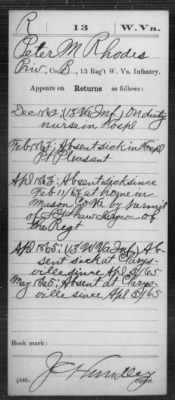 R | 13 | W. Va.
Peter M. Rhodes
Priv, Co. B, 13 Reg't W. Va. Infantry.
Appears on Returns as follows:
Dec 1862, (13 Va Inf) On duty
nurse in Hospl
Feb 1863; Absent sick in Hospl
Pt Pleasant
Apl 1863; Absent sick since
Feb 14/63 at home in
Mason Co Va by permit
of Shaw Surgeon of
the Regt
Apl 1865; (13 W Va Inf) Ab-
sent sick at Clarys-
ville since Apl 5/65
May 1865; Absent at Clarys-
ville since Apl 5/65
Book mark:
(546)
Copyist.